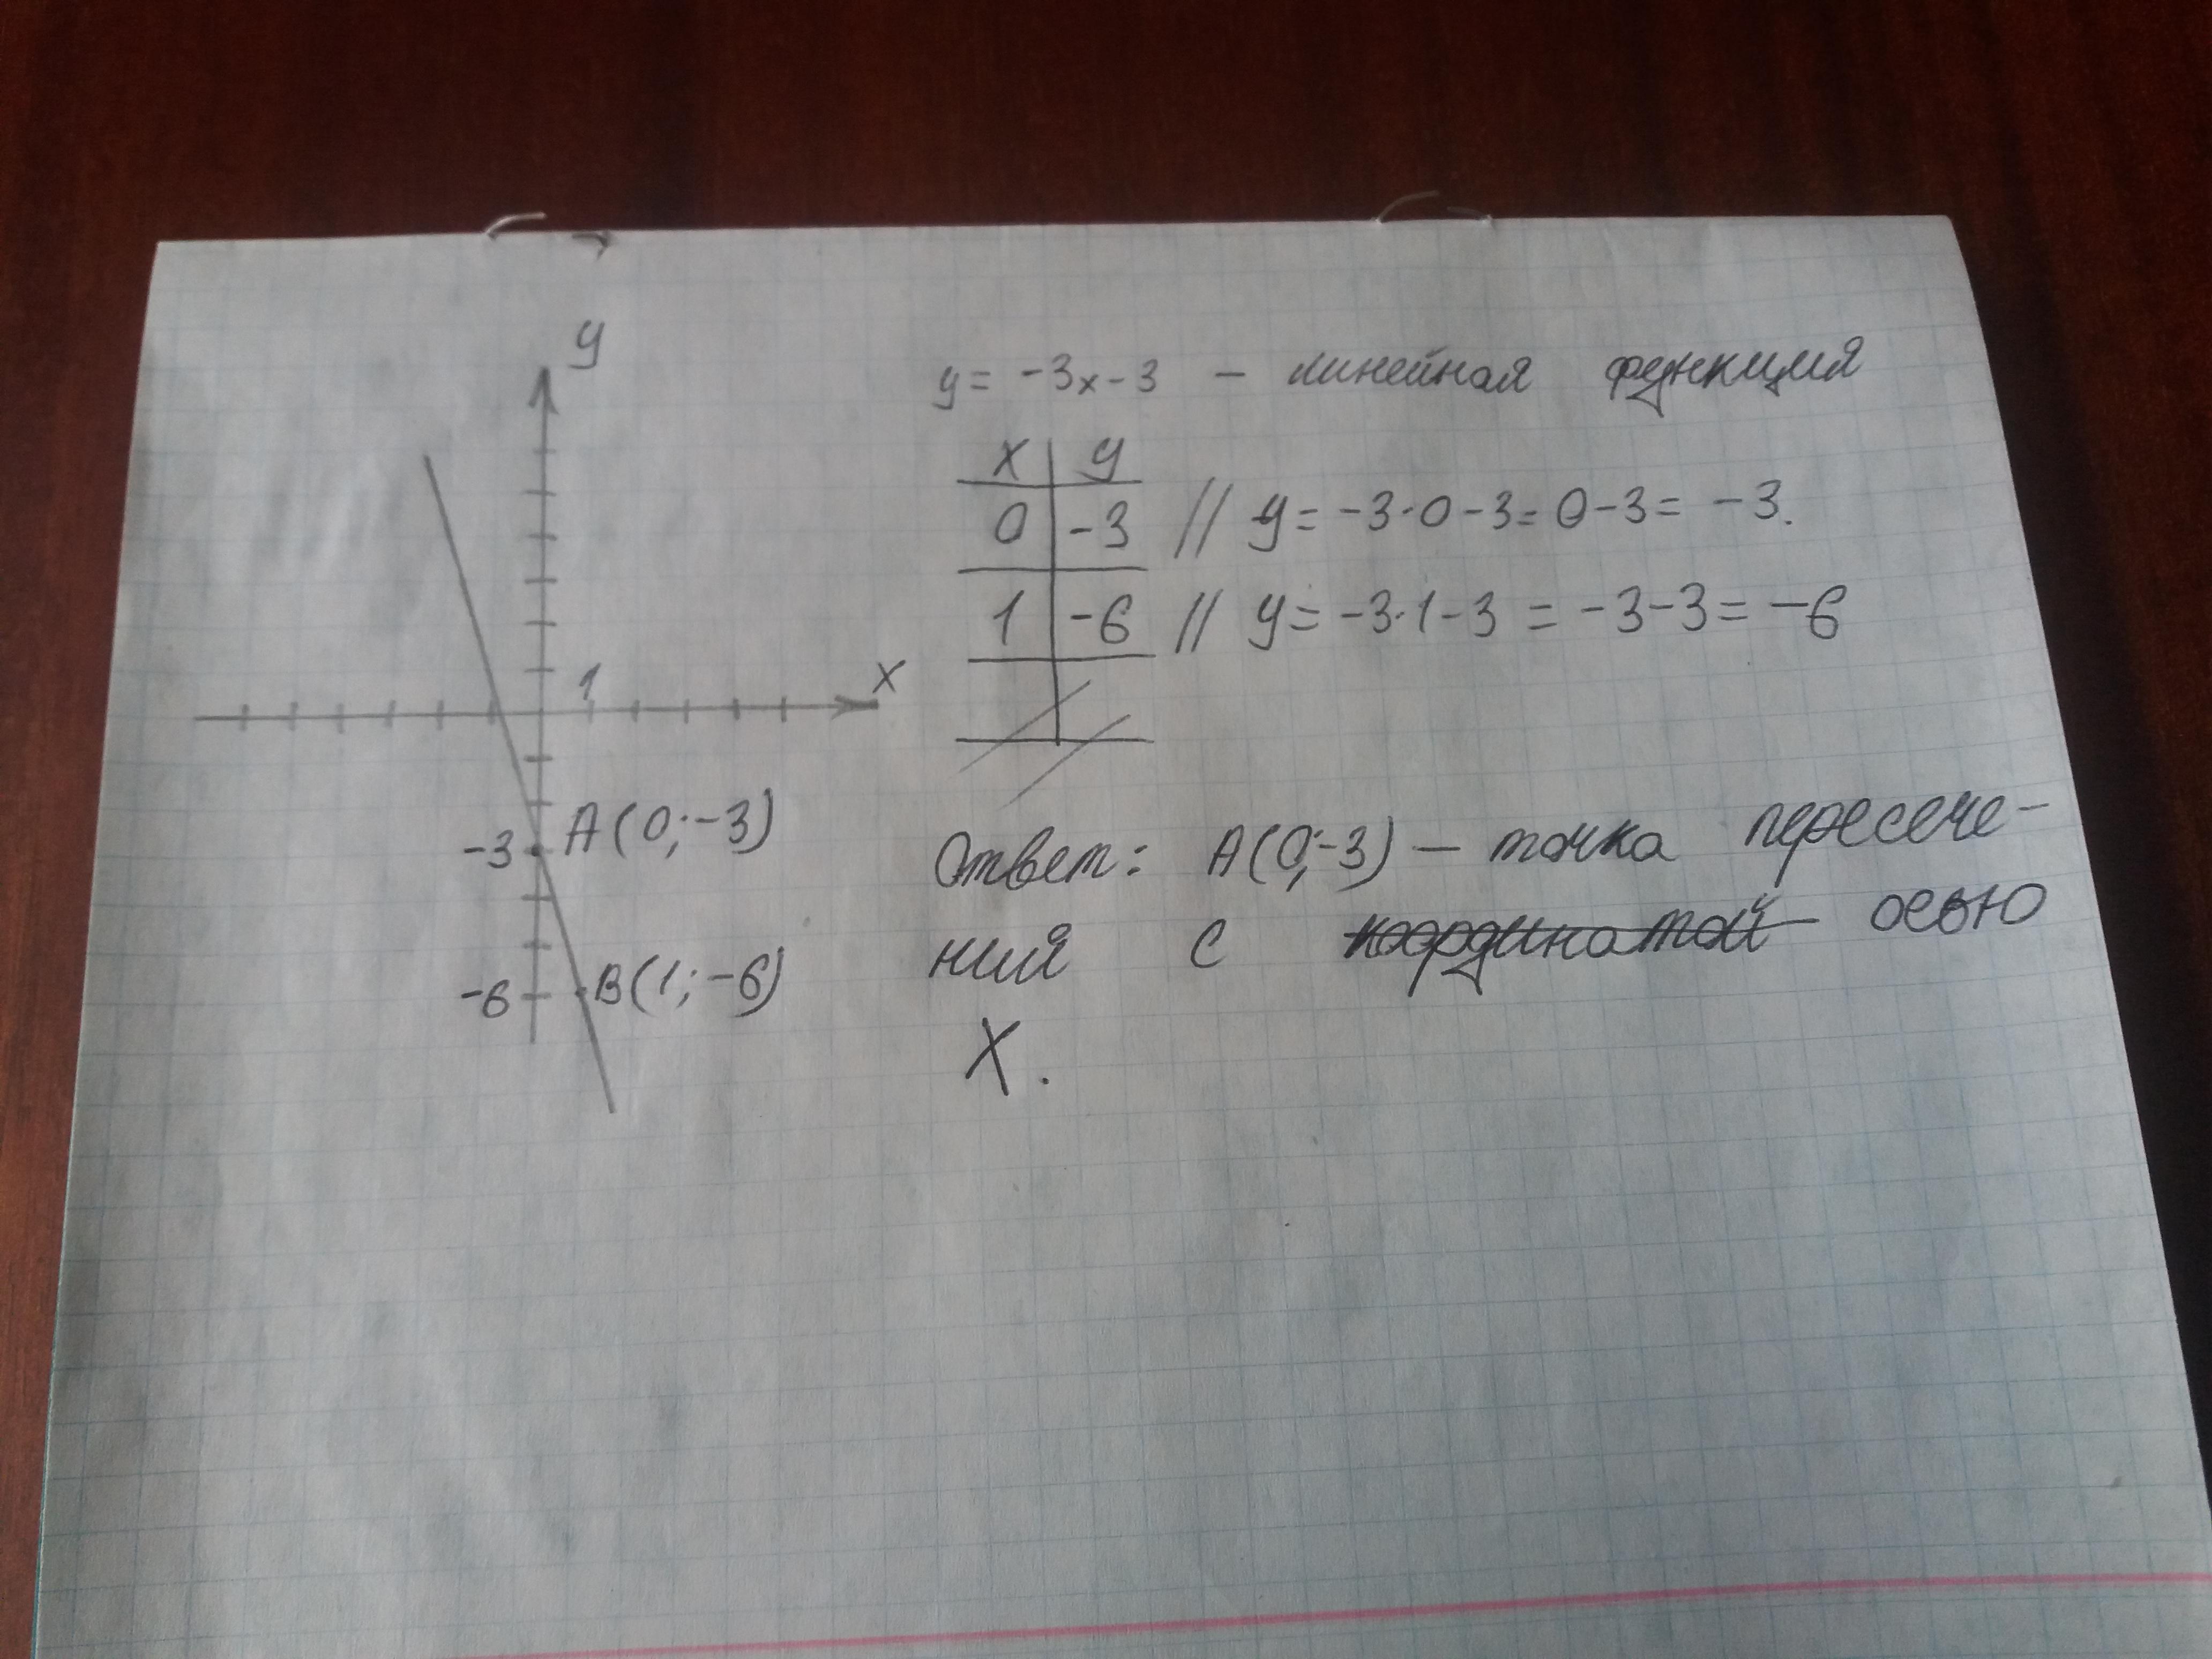 y
y = -3x-3 - линейная функция
x y
0 -3 // y = -3·0-3 = 0-3 = -3.
1 -6 // y = -3·1-3 = -3-3 = -6
1 x
-3 A(0;-3)
-6 B(1;-6)
Ответ: A(0;-3) – точка пересече-
ния с координатой осью
X.